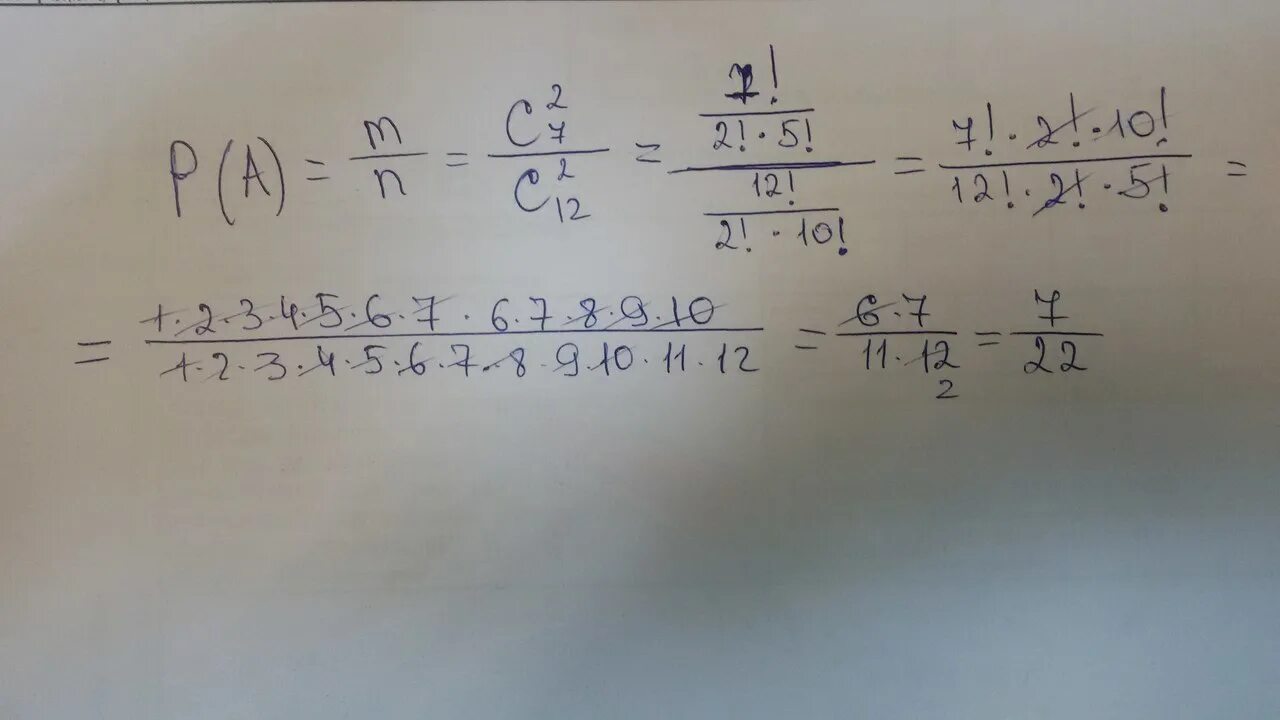 P(A) = m/n = C_7^2 / C_12^2 = (7! / (2! · 5!)) / (12! / (2! · 10!)) = (7! · 2! · 10!) / (12! · 2! · 5!) =
= (1·2·3·4·5·6·7 · 6·7·8·9·10) / (1·2·3·4·5·6·7·8·9·10·11·12) = (6·7) / (11·12) 2 = 7/22